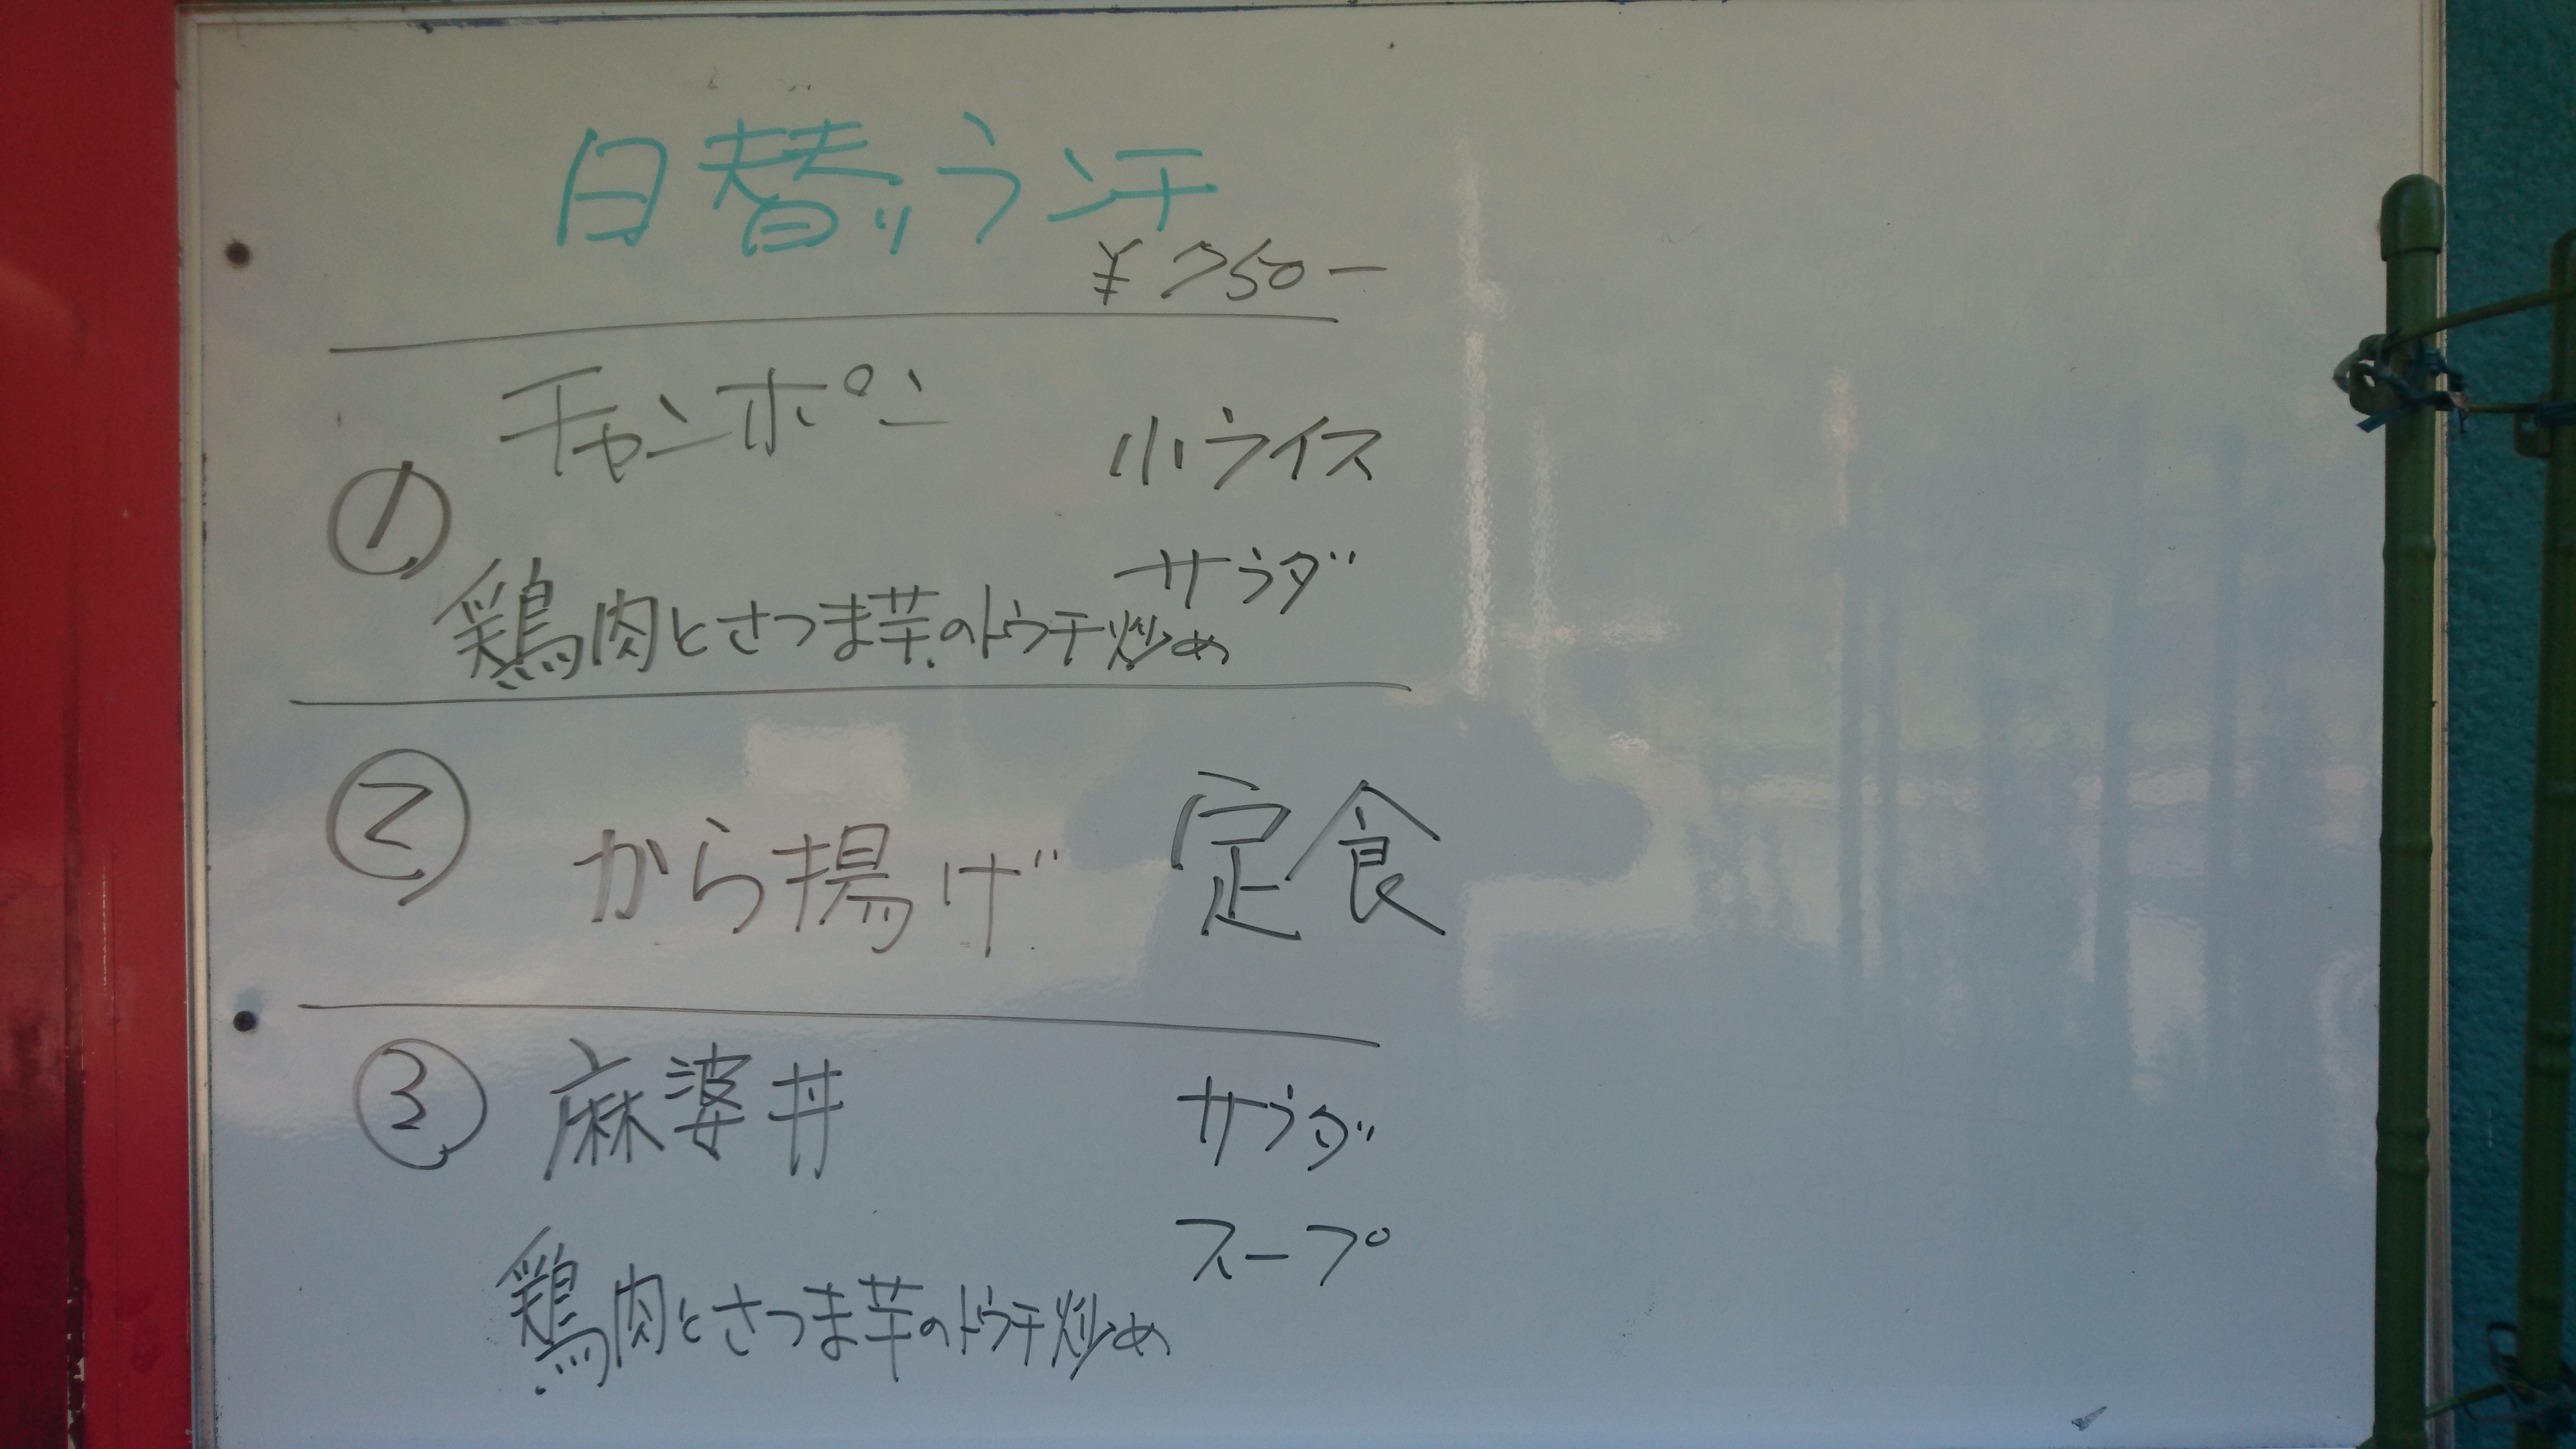 日替りランチ
¥750-
チャンポン 小ライス
① サラダ
鶏肉とさつま芋のトウチ炒め
② から揚げ 定食
③ 麻婆丼 サラダ
スープ
鶏肉とさつま芋のトウチ炒め